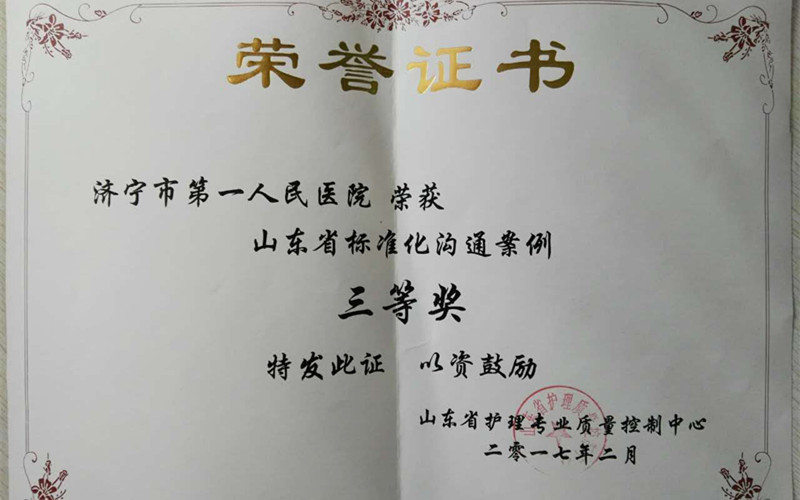 荣誉证书
济宁市第一人民医院 荣获
山东省标准化沟通案例
三等奖
特发此证 以资鼓励
山东省护理专业质量控制中心
二零一七年二月
山东省护理质